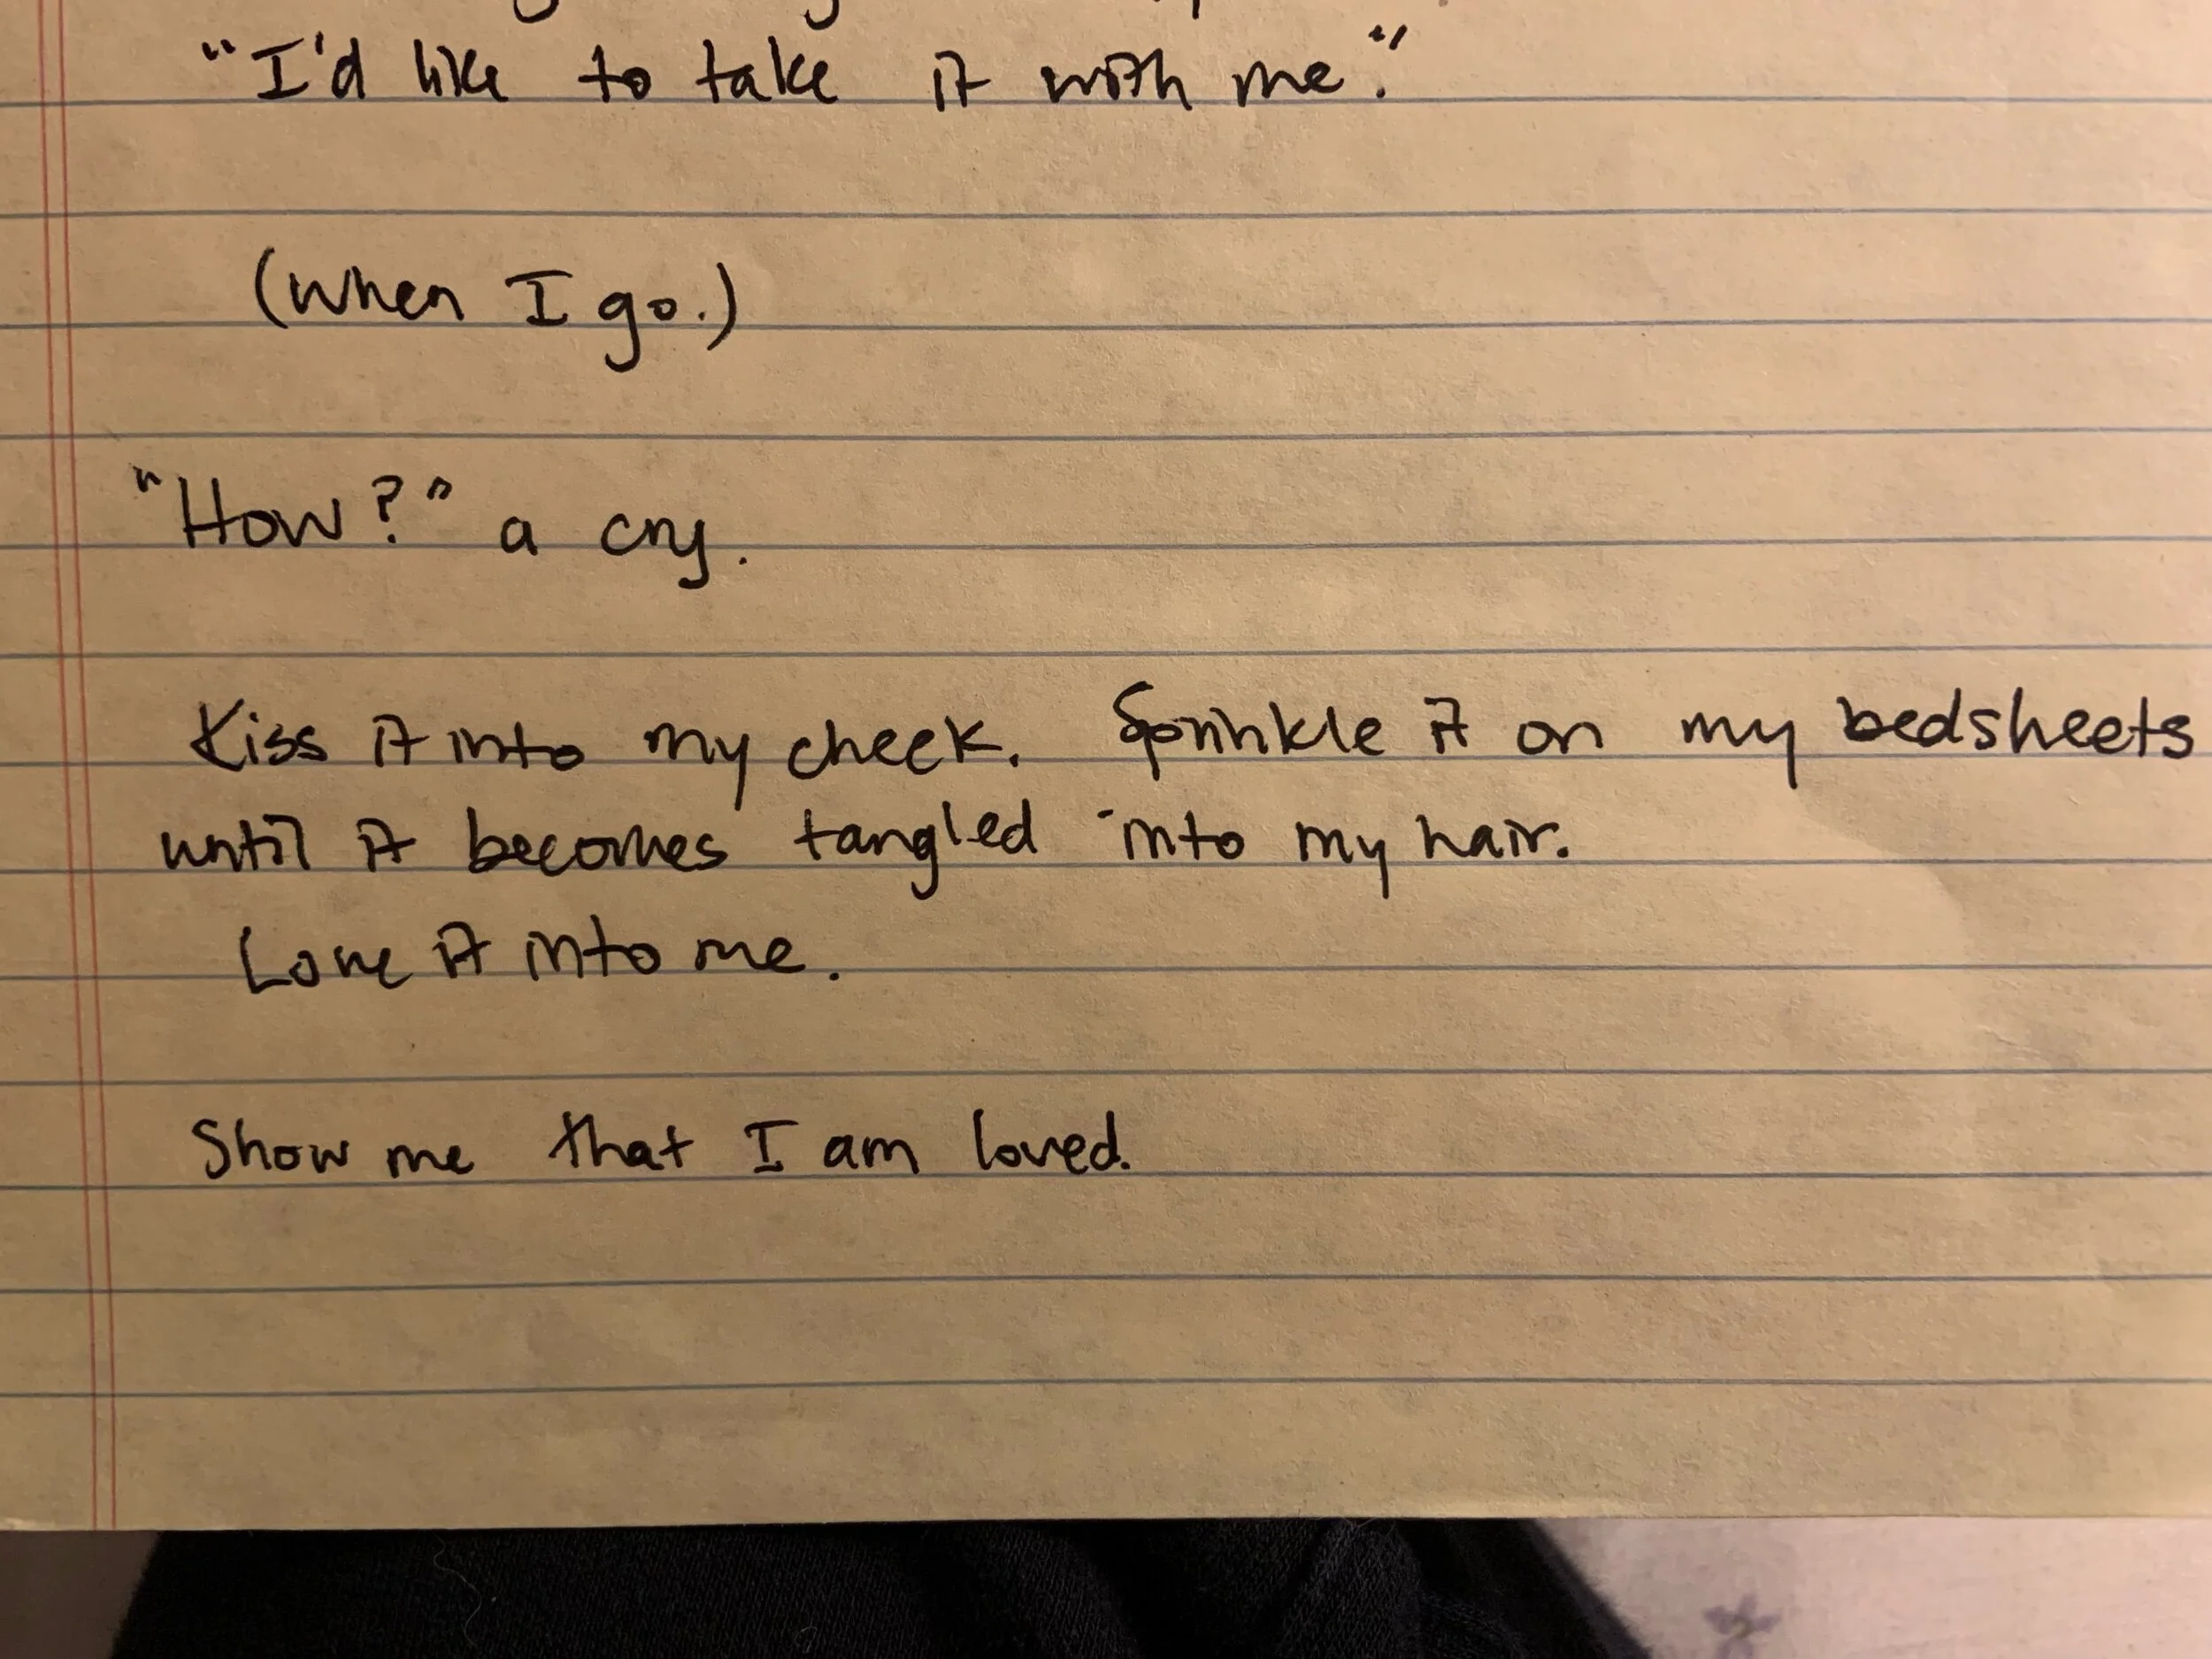 "I'd like to take it with me."
(When I go.)
"How?" a cry.
Kiss it into my cheek. Sprinkle it on my bedsheets
until it becomes tangled into my hair.
Love it into me.
Show me that I am loved.